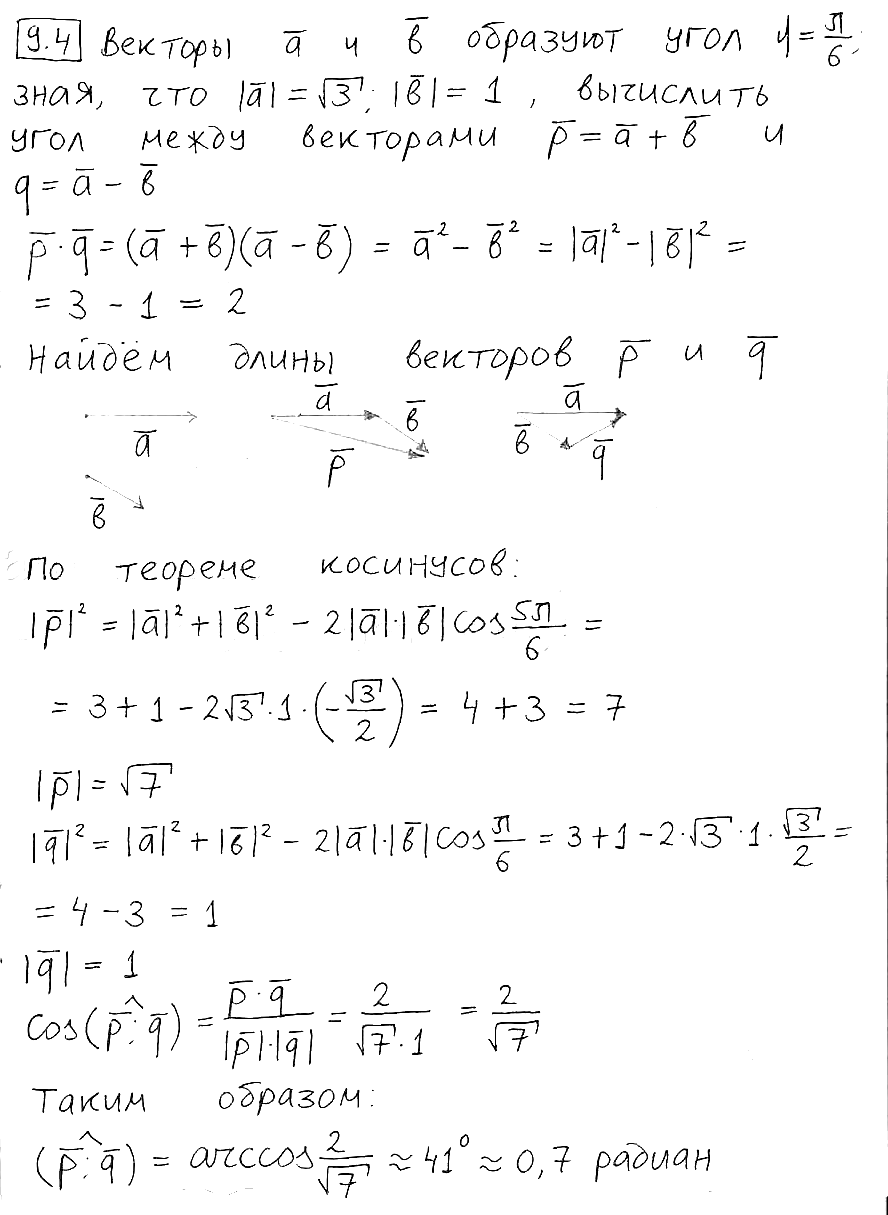 9.4 Векторы a̅ и в̅ образуют угол φ = π/6;
зная, что |a̅| = √3; |в̅| = 1, вычислить
угол между векторами p̅ = a̅ + в̅ и
q = a̅ - в̅
p̅ · q̅ = (a̅ + в̅)(a̅ - в̅) = a̅² - в̅² = |a̅|² - |в̅|² =
= 3 - 1 = 2
Найдём длины векторов p̅ и q̅
a̅ в̅ a̅
a̅ p̅ в̅ q̅
в̅
По теореме косинусов:
|p̅|² = |a̅|² + |в̅|² - 2|a̅|·|в̅| cos 5π/6 =
= 3 + 1 - 2√3 · 1 · (-√3/2) = 4 + 3 = 7
|p̅| = √7
|q̅|² = |a̅|² + |в̅|² - 2|a̅|·|в̅| cos π/6 = 3 + 1 - 2·√3 · 1 · √3/2 =
= 4 - 3 = 1
|q̅| = 1
cos(p̅;^q̅) = p̅ · q̅ / |p̅|·|q̅| = 2/(√7 · 1) = 2/√7
Таким образом:
(p̅;^q̅) = arccos 2/√7 ≈ 41° ≈ 0,7 радиан